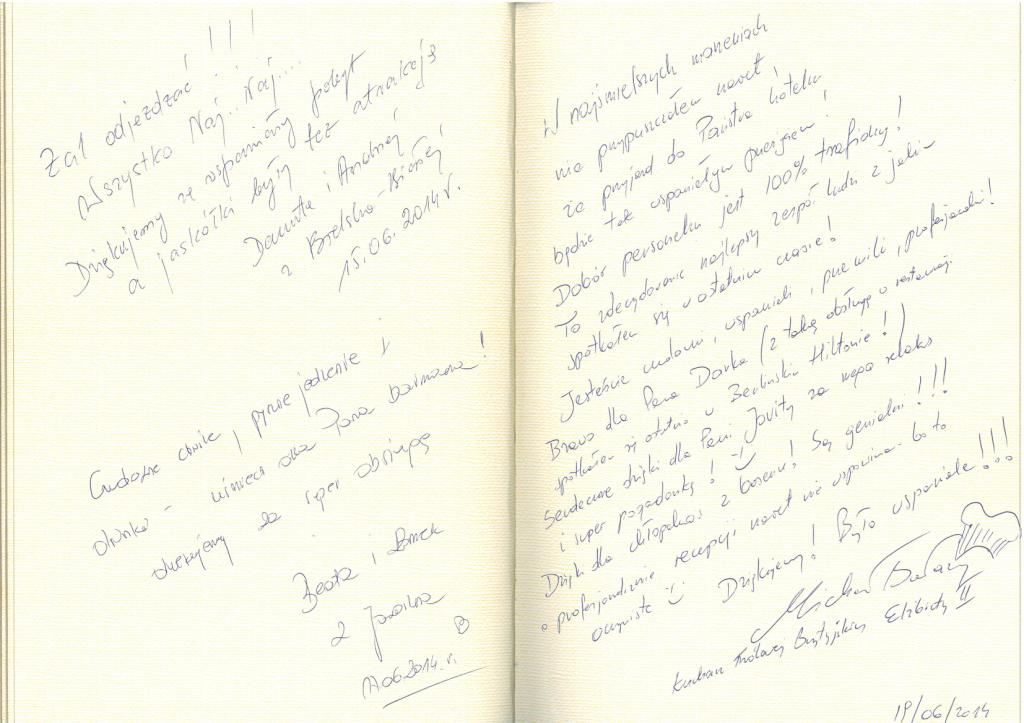 !!!
Żal odjeżdżać
Wszystko Naj... Naj....
Dziękujemy za wspaniały pobyt
a jaskółki były też atrakcją
Danuta i Andrzej
z Bielska-Białej
15.06.2014 r.
Cudowne chwile, pyszne jedzenie i
drinki - uśmiech dla Pana barmana!
dziękujemy za super obsługę
Beata i
z
2014 r.
W najśmielszych marzeniach
nie przypuszczałem nawet,
że przyjazd do Państwa hotelu
będzie tak wspaniałym przeżyciem!
Dobór personelu jest 100% trafiony!
To zdecydowanie najlepszy zespół ludzi z jakim
spotkałem się w ostatnim czasie!
Jesteście cudowni, wspaniali, przemili, profesjonalni!
Brawo dla Pana Darka (z taką obsługą w restauracji
spotkałem się ostatnio w Berlińskim Hiltonie!)
Serdeczne dzięki dla Pani Jowity za mega relaks
i super pogadankę!
Dzięki dla chłopaków z basenu! Są genialni!!!
O profesjonalizmie recepcji nawet nie wspominam bo to
oczywiste Dziękujemy! Było wspaniale!!!
Michał
Kucharz Królowej Brytyjskiej Elżbiety II
19/06/2014